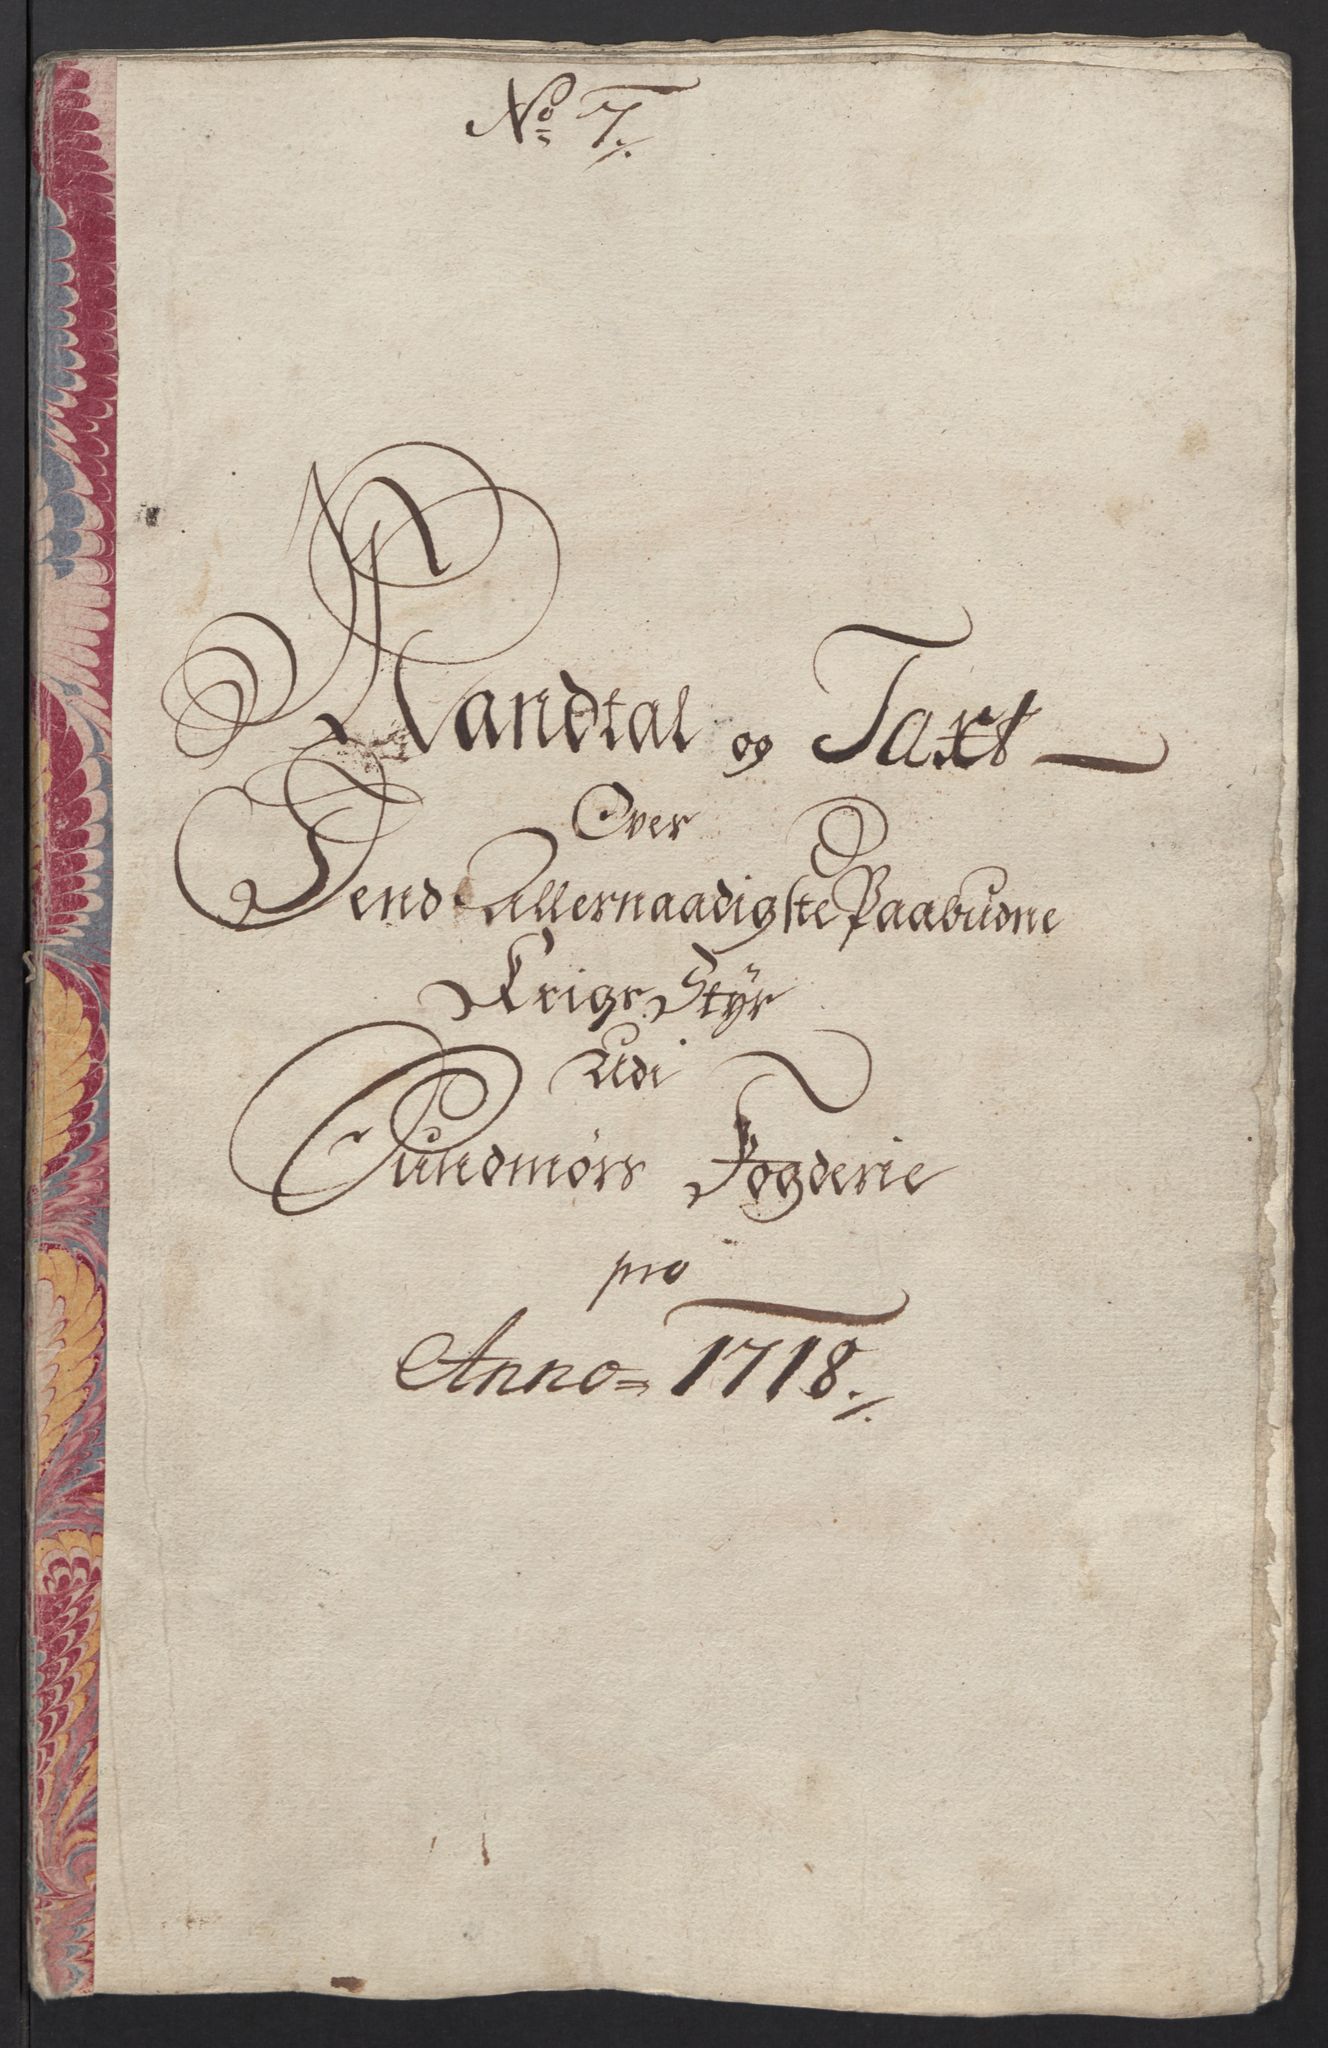 No 7./.
Mandtal og Taxt
Over
Dend Allernaadigste Paabudne
Krigs Styr
Udi
Sundmørs Fogderie
pro
Anno = 1718./.